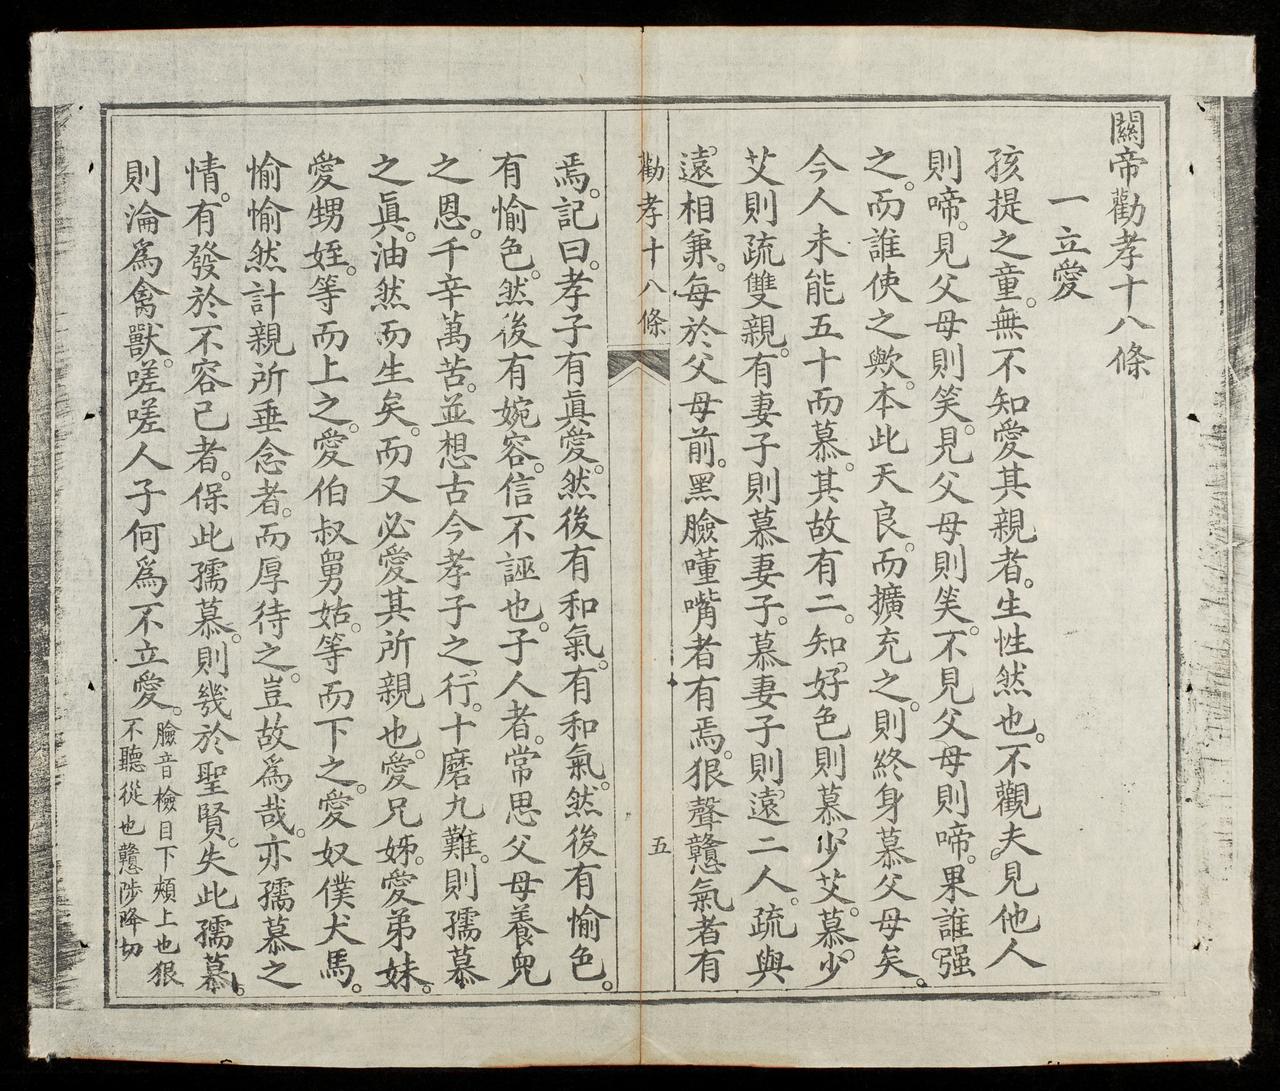 關帝勸孝十八條
一立愛
孩提之童。無不知愛其親者。生性然也。不觀夫見他人
則啼。見父母則笑。見父母則笑。不見父母則啼。果誰强
之。而誰使之歟。本此天良。而擴充之。則終身慕父母矣。
今人未能五十而慕。其故有二。知好色則慕少艾。慕少
艾則疏雙親。有妻子則慕妻子。慕妻子則遠二人。疏與
遠相兼。每於父母前。黑臉嘴者有焉。狠聲戇氣者有
勸孝十八條
五
焉。記曰。孝子有眞愛。然後有和氣。有和氣。然後有愉色。
有愉色。然後有婉容。信不誣也。子人者。常思父母養兒
之恩。千辛萬苦。並想古今孝子之行。十磨九難。則孺慕
之眞。油然而生矣。而又必愛其所親也。愛兄姊。愛弟妹。
愛甥姪。等而上之。愛伯叔舅姑。等而下之。愛奴僕犬馬。
愉愉然計親所垂念者。而厚待之。豈故爲哉。亦孺慕之
情。有發於不容已者。保此孺慕。則幾於聖賢。失此孺慕。
則淪爲禽獸。嗟嗟人子何爲不立愛。
臉音檢目下頰上也狠
不聽從也戇陟降切